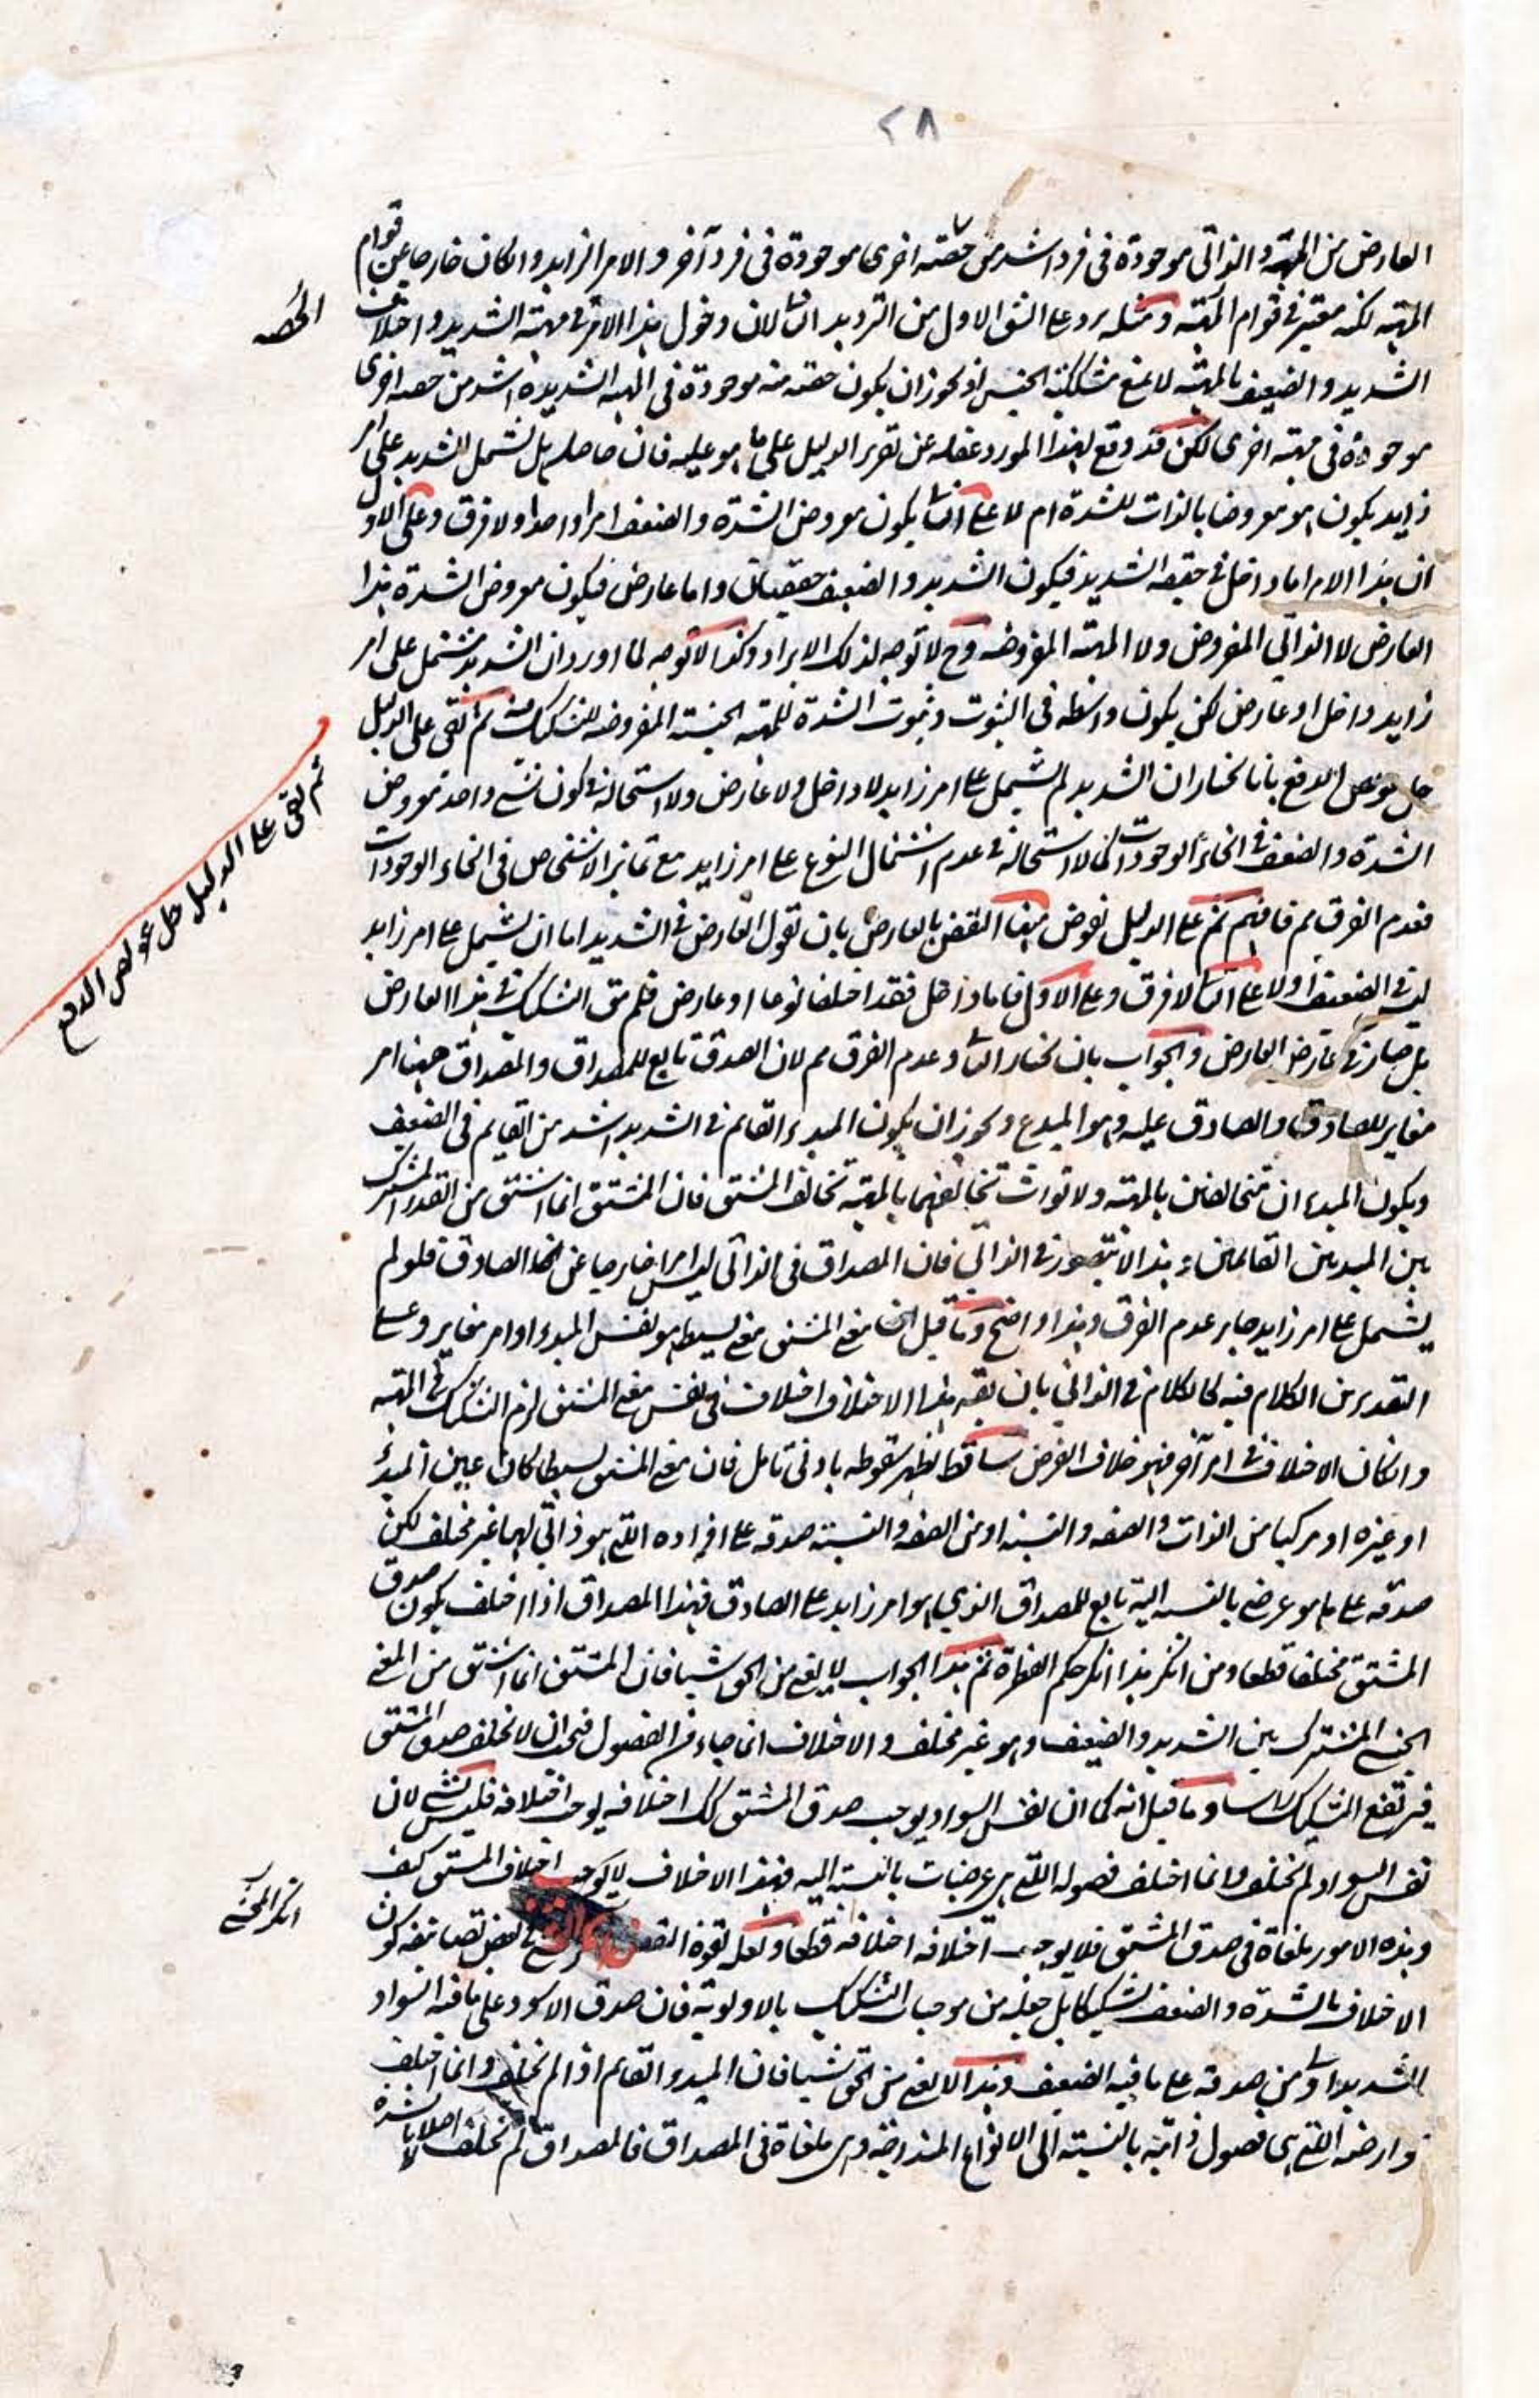 ٢٨
العارض من المهية والذاتي موجودة في فرد اشد من حصته اخرى موجودة في فرد آخر والامر الزايد وان كان خارجا عن قوام
المهية لكنه معتبر في قوام المهية ومثله يرد على الشق الاول من الترديد الثا لان دخول هذا الامر في مهية الشديد واختلاف
الشديد والضعيف بالمهية لا يمنع مشككية الجنس اذ يجوز ان يكون حصته منه موجودة في المهية الشديدة اشد من حصه اخرى
موجودة في مهية اخرى لكن قد وقع لهذا المورد غفله عن تقرير الدليل على ما هو عليه فان حاصله هل يشتمل الشديد على امر
زايد يكون هو معروضا بالذات للشدة ام لا على الثا يكون معروض الشدة والضعف امرا واحدا ولا فرق وعلى الاول
ان هذا الامر اما داخل في حقيقة الشديد فيكون الشديد والضعيف حقيقتان واما عارض فيكون معروض الشدة هذا
العارض لا الذاتي المفروض ولا المهية المفروضه وح لا توجه لذلك الايراد وكذا لا توجه لما اورد ان الشديد يشتمل على امر
زايد داخل او عارض لكن يكون واسطه في الثبوت وثبوت الشدة للمهية الجنسية المفروضه للتشكيك فيه ثم بقى على الدليل
حل عويص الدفع بانا نختار ان الشديد لم يشتمل على امر زايد لا داخل ولا عارض ولا استحالة في كون شئ واحد معروض
الشدة والضعف في انحاء الوجودات كما لا استحالة في عدم اشتمال النوع على امر زايد مع تمايز الاشخاص في انحاء الوجودات
فعدم الفرق مم فافهم ثم على الدليل نقوض منها النقض بالعارض بان نقول العارض في الشديد اما ان يشتمل على امر زايد
ليس في الضعيف او لا على الثا لا فرق وعلى الاول فاما داخل فقد اختلفا نوعا او عارض فلم يبق التشكيك في هذا العارض
بل صار في عارض العارض والجواب بان نختار الثا وعدم الفرق مم لان الصدق تابع للمصداق والمصداق ههنا امر
مغاير للصادق والصادق عليه وهو المبدء ويجوز ان يكون المبدء القائم في الشديد اشد من القايم في الضعيف
ويكون المبدءان متخالفين بالمهية ولا تورث تخالفهما بالمهية تخالف المشتق فان المشتق انما اشتق من القدر المشترك
بين المبدئين القائمين وهذا لا يتصور في الذاتي فان المصداق في الذاتي ليس امرا خارجا عن الصادق فلو لم
يشتمل على امر زايد صار عدم الفرق وهذا واضح وما قيل ان معنى المشتق معنى بسيط هو نفس المبدء او امر مغاير وعلى
التقديرين الكلام فيه كالكلام في الذاتي بان يقال هذا الاختلاف اختلاف في نفس معنى المشتق لزم التشكيك في المهية
وان كان الاختلاف في امر آخر فهو خلاف الفرض ساقط يظهر سقوطه بادنى تامل فان معنى المشتق بسيطا كان عين المبدء
او غيره او مركبا من الذات والصفه والنسبة او من الصفه والنسبته صدقه على افراده اللتي هو ذاتي لها غير مختلف لكن
صدقه على ما هو عرضي بالنسبه اليه تابع للمصداق الذي هو امر زايد على الصادق فهذا المصداق اذا اختلف يكون صدق
المشتق مختلفا قطعا ومن انكر هذا انكر حكم الفطرة ثم هذا الجواب لا يغنى من الحق شيا فان المشتق انما اشتق من المعنى
الجنسى المشترك بين الشديد والضعيف وهو غير مختلف والاختلاف انما جاء من الفصول فيجب ان لا يختلف صدق المشتق
فيرتفع التشكيك راسا وما قيل انه كما ان نفس السواد يوجب صدق المشتق كك اختلافه يوجب اختلافه فليس بشئ لان
نفس السواد لم يختلف وانما اختلف فصوله اللتي هي عرضيات بالنسبته اليه فهذا الاختلاف لا يوجب اختلاف المشتق كيف
وهذه الامور ملغاة في صدق المشتق فلا يوجب اختلافه اختلافه قطعا ولعله لقوة النقض في بعض تصانيفه كون
الاختلاف بالشدة والضعف تشكيكا بل جعله من موجبات التشكيك بالاولوية فان صدق الاسود على ما فيه السواد
الشديد اولى من صدقه على ما فيه الضعيف وهذا لا يغنى من الحق شيا فان المبدء القايم اذا لم يختلف وانما اختلف
عوارضه اللتي هي فصول ذاتية بالنسبته الى الانواع المندرجة وهي ملغاة في المصداق فالمصداق لم يختلف اصلا لا بالشدة
الحصه
ثم بقى على الدليل حل عويص الدفع
انكر المحشى